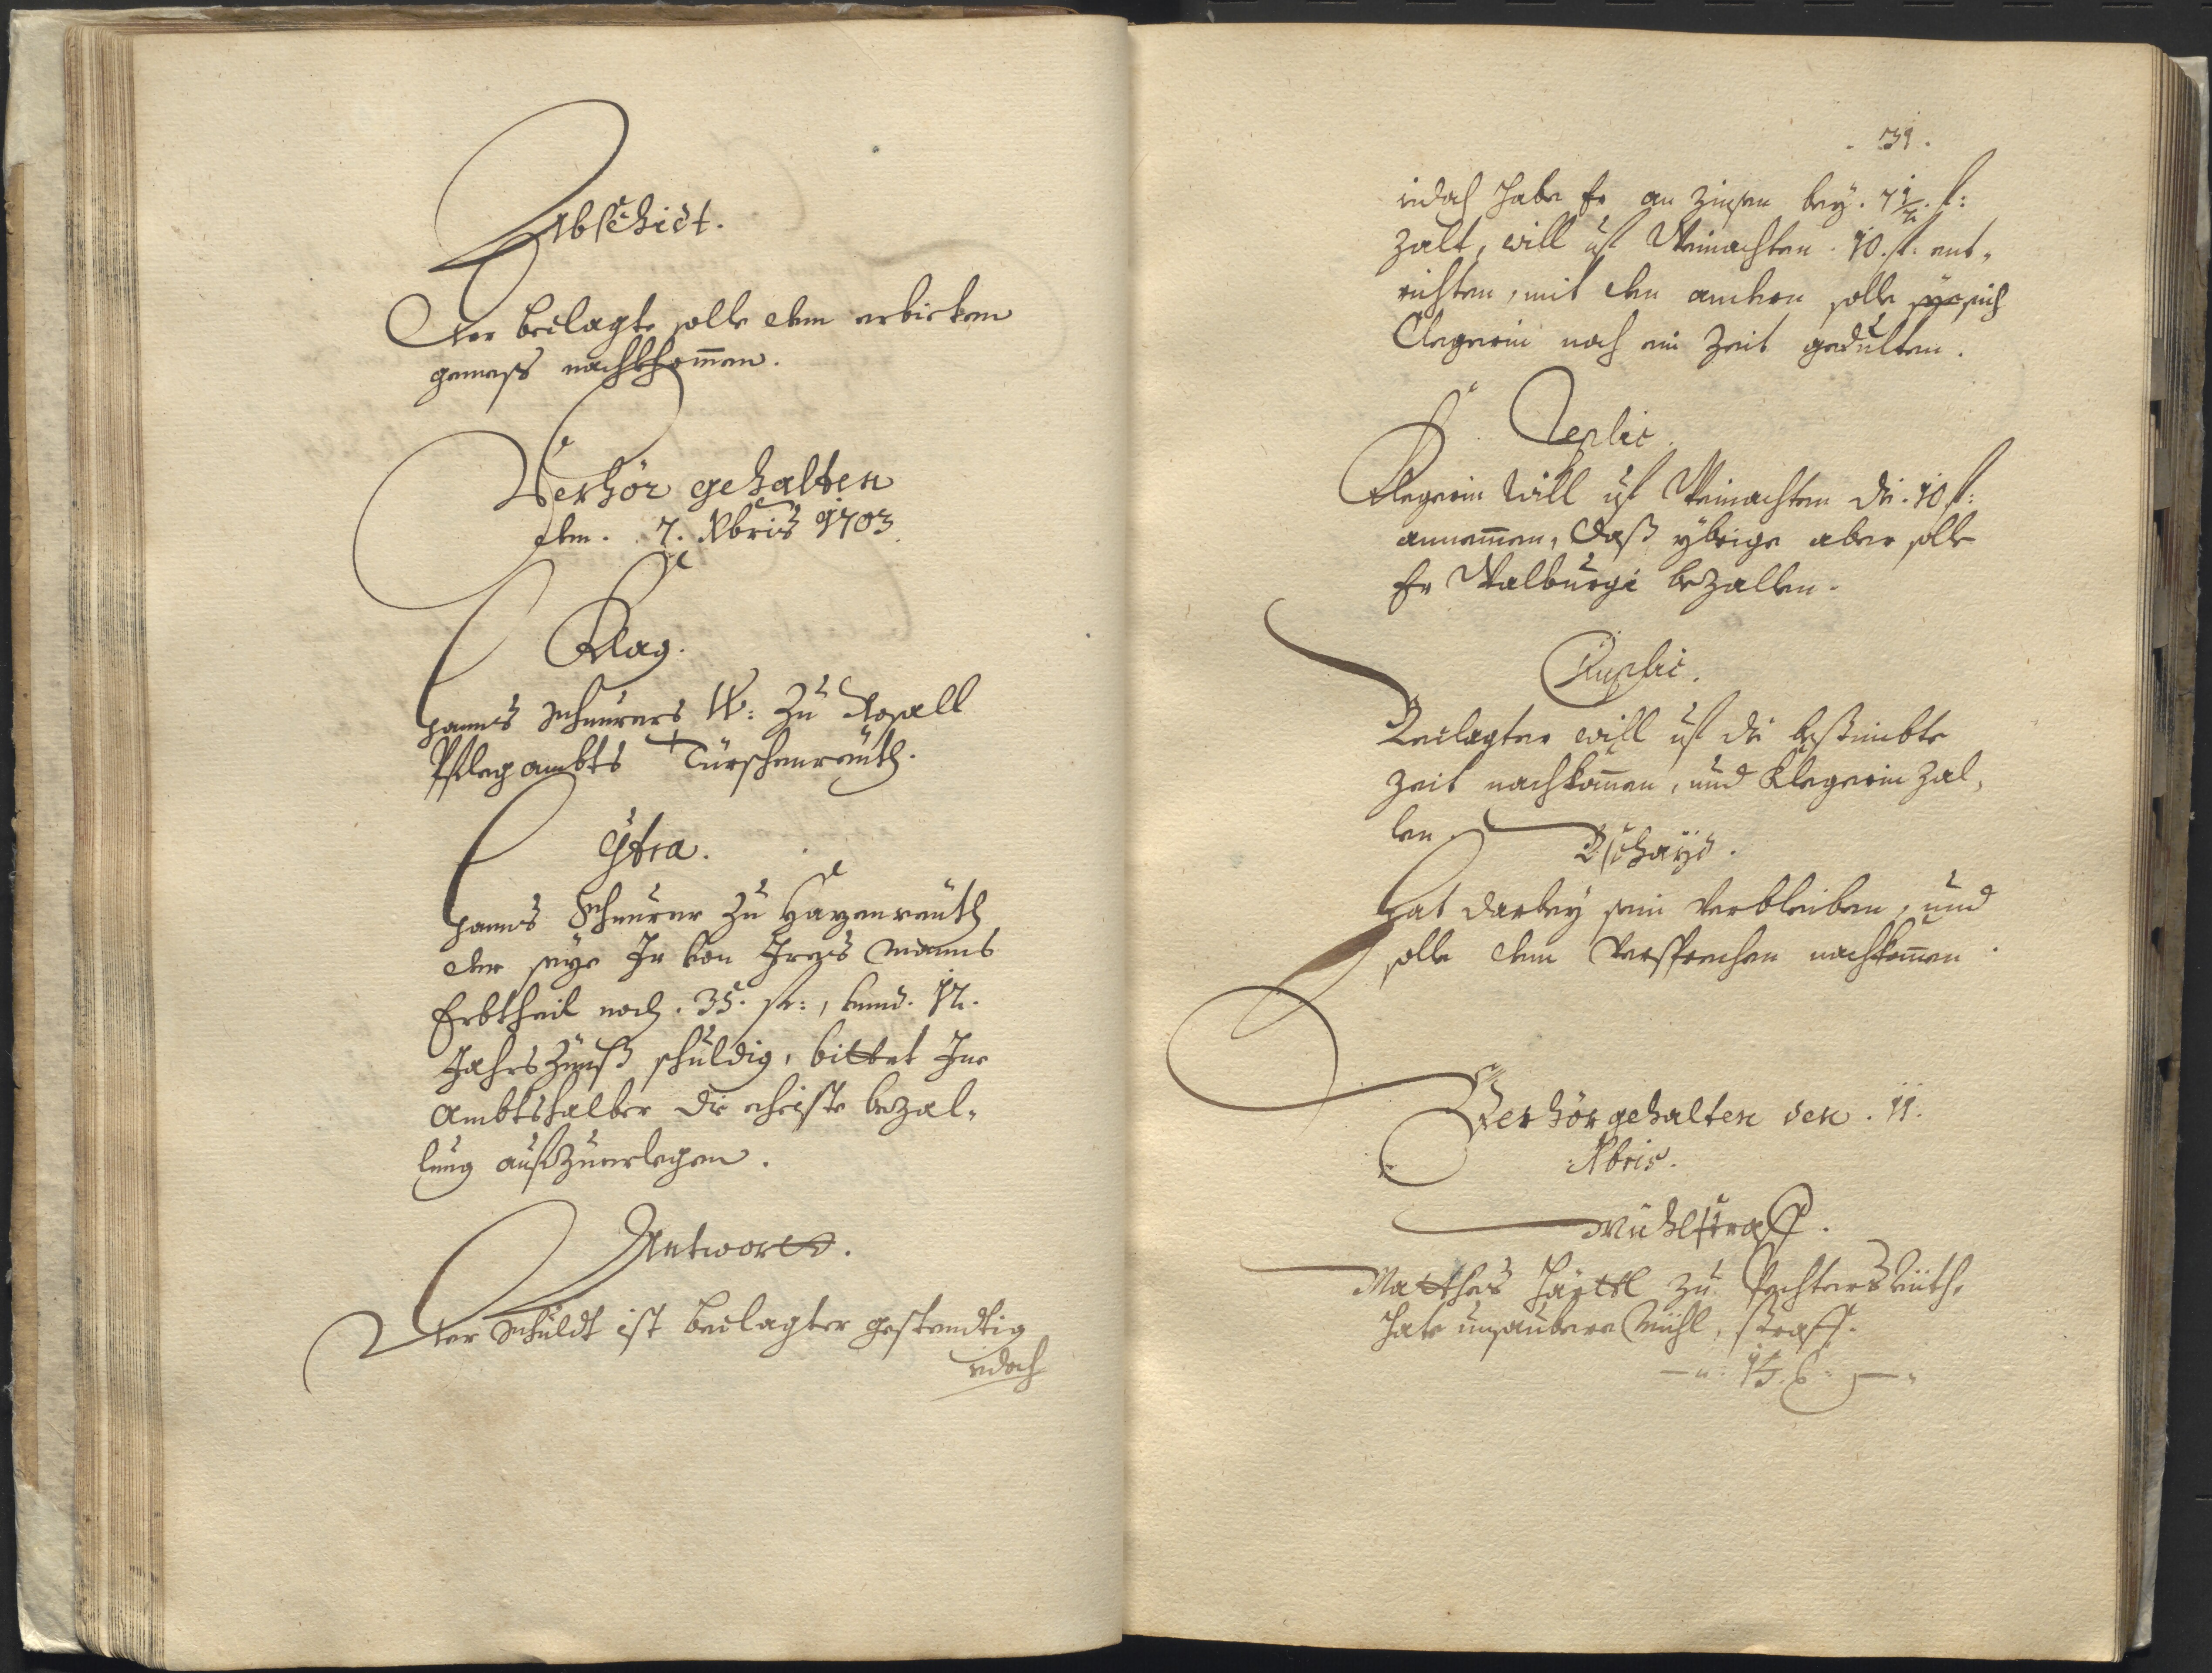 Abschidt.
Der beclagte solle dem erbieten
gemeß nachkhom̄en.
Verhör gehalten
den . 7. Xbris 1703.
Klag.
Hannß Scheurers W: zu Rosall
Pflegambts Türschenreüth.
Cȯtra.
Hannß Scheurer zu Hazenreüth
der seye Ir von Ires Manns
Erbtheil noch . 35. fl:, vnnd . 12.
Jahrs Zünß schuldig, bittet Ine
Ambtshalber die eheiste bezal„
lung aufzuerlegen.
Antwortt.
Der Schuldt ist beclagter gestendtig
iedoch
. 31.
iedoch habe Er an Zinsen bey . 7 1/2 . fl:
zalt, will uf Weinachten . 10. fl. ent„
richten, mit den andern solle sye sich
Clegerin noch ein Zeit gedulten.
Replic.
Klegerin will uf Weinachten die . 10 fl:
annem̄en, daß ybrige aber solle
Er Walburgi bezallen.
Duplic.
Beclagter will uf die bestimbte
Zeit nachkom̄en, und Klegerin zal„
len.
Bschayd.
Hat darbey sein verbleiben, und
solle dem Versprechen nachkom̄en.
Verhör gehalten den . 11.
Xbris.
Mühlstraff.
Matthes Härttl zu
hate unsaubere Mühl, straff.